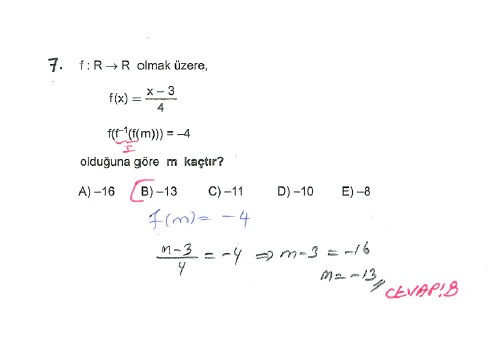 7. f : R → R olmak üzere,
f(x) = x – 3 / 4
f(f⁻¹(f(m))) = –4
I
olduğuna göre m kaçtır?
A) –16 B) –13 C) –11 D) –10 E) –8
f(m) = -4
m-3 / 4 = -4 ⇒ m-3 = -16
m = -13
CEVAP:B